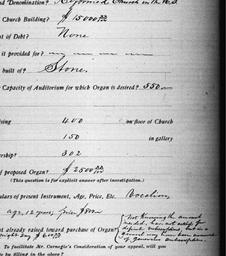 nd Denomination? Reformed Church in the U.S.
Church Building? $ 15000.00
t of Debt? None
it provided for?
built of? Stone.
Capacity of Auditorium for which Organ is desired? 550
400 on floor of Church
150 in gallery
ership? 302
f proposed Organ? $ 2500.00
(This question is for explicit answer after investigation.)
ulars of present Instrument, Age, Price, Etc. Vocalion,
age, 12 years, price
nt already raised toward purchase of Organ? Not knowing the amount
needed,
definite subscriptions, but in a
general way have been assured
of generous subscriptions.
To facilitate Mr. Carnegie's Consideration of your appeal, will you
be filling in the above?